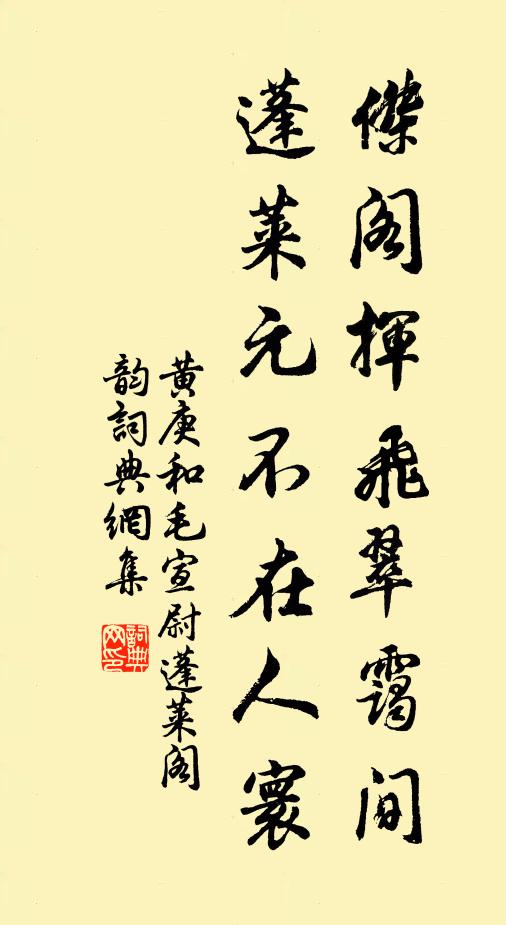 傑閣揮飛翠靄間
蓬萊元不在人寰
黃庚和毛宣尉蓬萊閣
韵詞典網集
詞典
网印